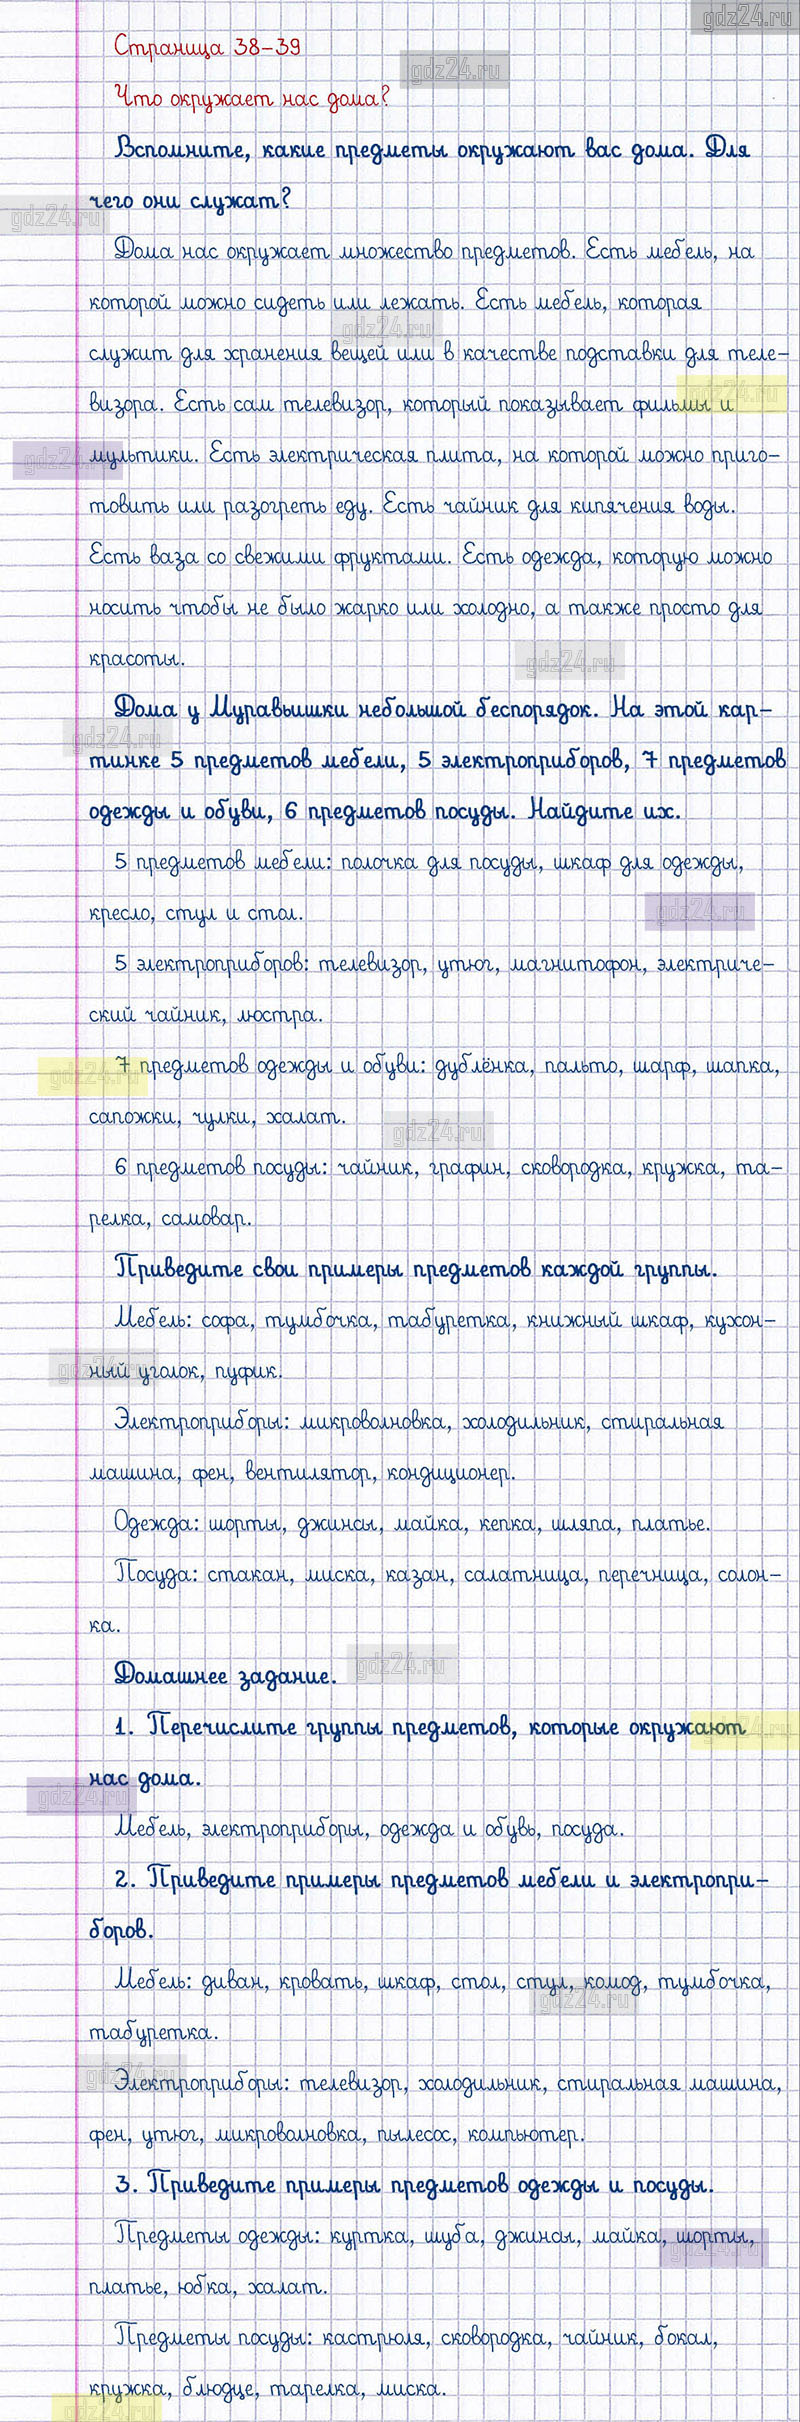 gdz24.ru
Страница 38-39
gdz24.ru
Что окружает нас дома?
Вспомните, какие предметы окружают вас дома. Для
чего они служат?
gdz24.ru
Дома нас окружает множество предметов. Есть мебель, на
которой можно сидеть или лежать. Есть мебель, которая
gdz24.ru
служит для хранения вещей или в качестве подставки для теле-
gdz24.ru
визора. Есть сам телевизор, который показывает фильмы и
gdz24.ru
мультики. Есть электрическая плита, на которой можно приго-
товить или разогреть еду. Есть чайник для кипячения воды.
Есть ваза со свежими фруктами. Есть одежда, которую можно
носить чтобы не было жарко или холодно, а также просто для
красоты.
gdz24.ru
Дома у Муравьишки небольшой беспорядок. На этой кар-
gdz24.ru
тинке 5 предметов мебели, 5 электроприборов, 7 предметов
одежды и обуви, 6 предметов посуды. Найдите их.
5 предметов мебели: полочка для посуды, шкаф для одежды,
кресло, стул и стол.
gdz24.ru
5 электроприборов: телевизор, утюг, магнитофон, электриче-
ский чайник, люстра.
7 предметов одежды и обуви: дублёнка, пальто, шарф, шапка,
gdz24.ru
сапожки, чулки, халат.
gdz24.ru
6 предметов посуды: чайник, графин, сковородка, кружка, та-
релка, самовар.
Приведите свои примеры предметов каждой группы.
Мебель: софа, тумбочка, табуретка, книжный шкаф, кухон-
gdz24.ru
ный уголок, пуфик.
Электроприборы: микроволновка, холодильник, стиральная
машина, фен, вентилятор, кондиционер.
Одежда: шорты, джинсы, майка, кепка, шляпа, платье.
Посуда: стакан, миска, казан, салатница, перечница, солон-
ка.
gdz24.ru
Домашнее задание.
1. Перечислите группы предметов, которые окружают
gdz24.ru
нас дома.
gdz24.ru
Мебель, электроприборы, одежда и обувь, посуда.
2. Приведите примеры предметов мебели и электропри-
боров.
Мебель: диван, кровать, шкаф, стол, стул, комод, тумбочка,
gdz24.ru
табуретка.
gdz24.ru
Электроприборы: телевизор, холодильник, стиральная машина,
фен, утюг, микроволновка, пылесос, компьютер.
3. Приведите примеры предметов одежды и посуды.
Предметы одежды: куртка, шуба, джинсы, майка, шорты,
gdz24.ru
платье, юбка, халат.
Предметы посуды: кастрюля, сковородка, чайник, бокал,
кружка, блюдце, тарелка, миска.
gdz24.ru